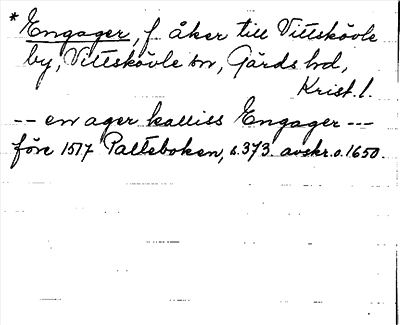 * Engager, f. åker till Vittskövle
by, Vittskövle sn, Gärds hd,
Krist. l.
-- en ager kalliss Engager ---
före 1517 Palteboken, s. 373 avskr. o. 1650.